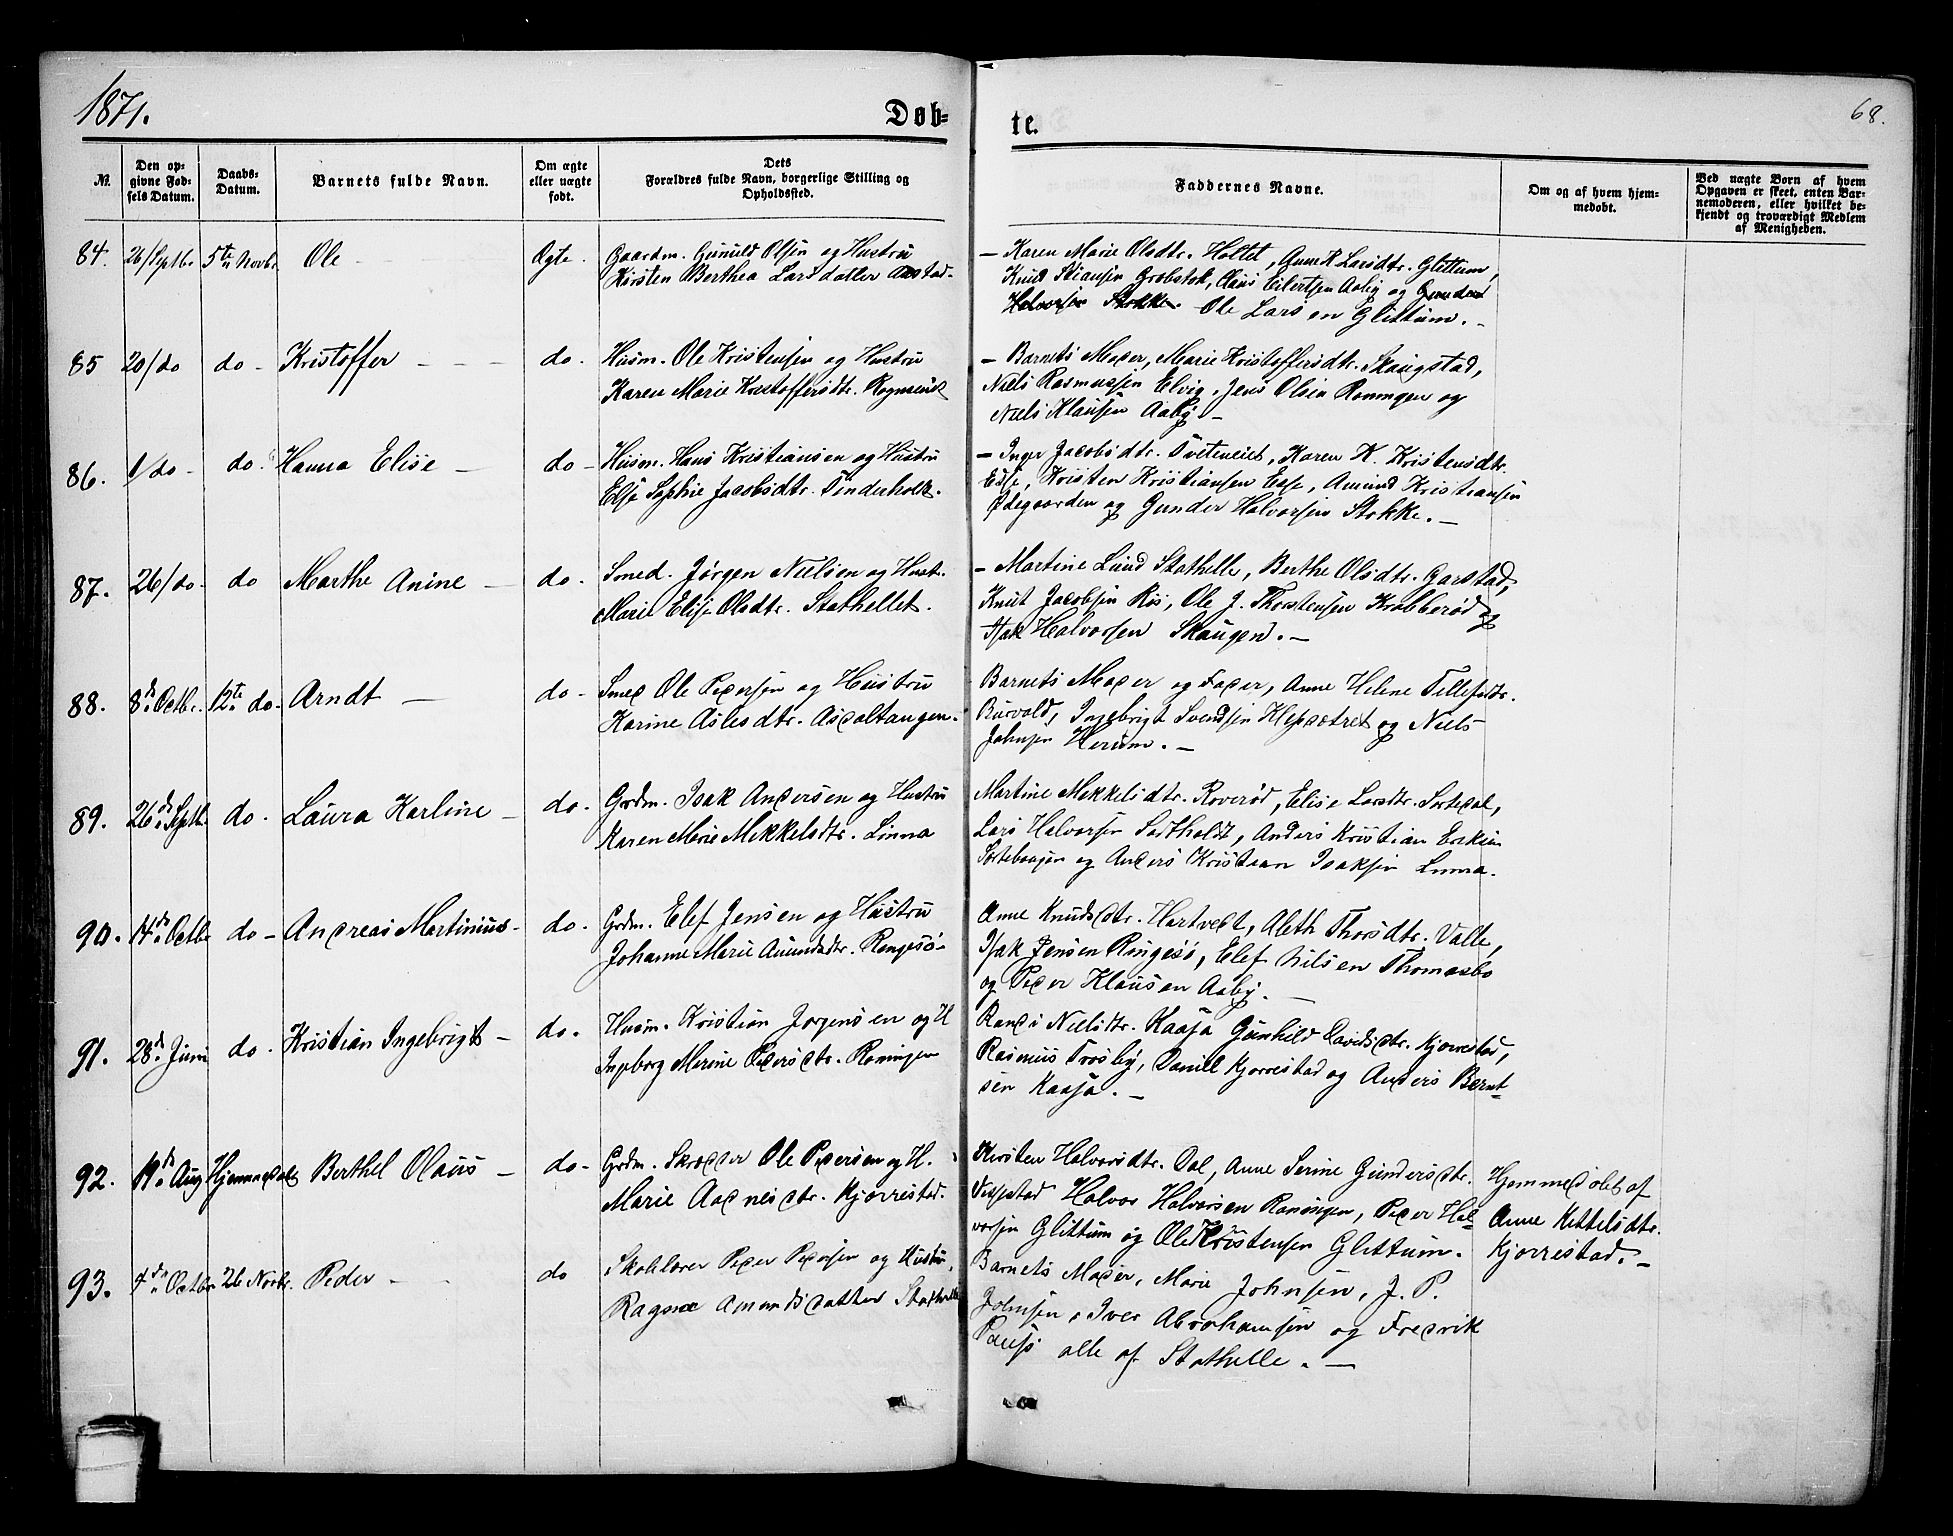 1871.
Døb-
te.
68.
№.
Den op-
givne Fød-
sels Datum.
Daabs-
Datum.
Barnets fulde Navn.
Om ægte
eller uægte
født.
Dets
Forældres fulde Navn, borgerlige Stilling og
Opholdssted.
Faddernes Navne.
Om og af hvem hjem-
medøbt.
Ved uægte Børn af hvem
Opgaven er skeet, enten Bar-
nemoderen, eller hvilket be-
kjendt og troværdigt Medlem
af Menigheden.
84. 26/Septbr. 5te Novbr. Ole - Ægte. Gaardm. Gunuld Olsen og Hustru
Kirsten Berthea Larsdatter
- Karen Marie Olsdtr. Holtet, Anne K Larsdtr. Glittum,
Knud Stiansen Grobstok, Claus Eilertsen Aaby og Gunder
Halvorsen Stokke. Ole Larsen Glittum. -
85 20/do do - Kristoffer - - - do. Husm. Ole Kristensen og Hustru
Karen Marie Kristoffersdtr.
- Barnets Moder, Marie Kristoffersdtr. Skaugstad,
Niels Rasmussen Elvig, Jens Olsen Roningen og
Niels Klausen Aaby. -
86. 1/do - do. Hanna Elise - do - Husm. Hans Kristiansen og Hustru
Else Sophie Jacobsdtr. Tinderholt.
- Inger Jacobsdtr. Tveteneiet, Karen K. Kristensdtr.
Kristen Kristiansen Amund Kristiansen
Ødegaarden og Gunder Halvorsen Stokke. -
87. 26/do - do Marthe Anine - do. Smed. Jørgen Nielsen og Hust.
Marie Elise Olsdtr. Stathellet.
- Martine Lund Stathelle, Berthe Olsdtr. Garstad,
Knut Jacobsen Røs, Ole J. Thorstensen Krabberød og
Isak Halvorsen Skaugen. -
88. 8de Octbr. 12te do. Arndt - do - Smed Ole Pedersen og Hustru
Karine Aslesdtr. Asdaltangen.
Barnets Moder og Fader, Anne Helene Tellefsdtr.
Ingebrigt Svendsen og Niels
Johnsen Herum. -
89. 26de Septb. do. Laura Karline - do. Grdm. Isak Andersen og Hustru
Karen Marie Mekkelsdtr. Linna
Martine Mekkelsdtr. Roverød, Elise Larsdtr. Sortedal,
Lars Halvorsen Anders Kristian Eriksen
og Anders Kristian Isaksen Linna.
90. 14de Octbr do - Andreas Martinius - do. Grdm. Elef Jensen og Hustru
Johanne Marie Amundsdtr. Ringesø -
Anne Knudsdtr. Hartvedt, Aleth Thorsdtr. Valle,
Isak Jensen Ringesø, Elef Nilsen Thomasbo
og Peder Klausen Aaby. -
91. 28de Juni do. Kristian Ingebrigt - do. Husm. Kristian Jørgensen og H
Ingeborg Merine Pedersdtr. Roningen
Randi Nielsdtr. Kaasa Gunhild Davidsdtr. Kjorrestad,
Rasmus Trosby, Daniel Kjorrestad og Anders Bernt-
sen Kaasa. -
92. 19de Aug Hjemmedøbt Berthel Olaus - do - Grdm. Skrædder Ole Pedersen og H.
Marie Aadnesdtr. Kjorrestad.
Kirsten Halvorsdtr. Dal, Anne Serine Gundersdtr.
Halvor Halvorsen Roningen, Peder Hal-
vorsen Glittum og Ole Kristensen Glittum.
Hjemmedøbt af
Anne Kittelsdtr.
Kjorrestad. -
93. 4de Octbr 26 Novbr. Peder - - do Skolelærer Peder Pedersen og Hustru,
Ragna Amundsdatter Stathelle
Barnets Moder, Marie Johnsen, J. P.
Johnsen, Iver Abrahamsen og Fredrik
Pauss alle af Stathelle. -